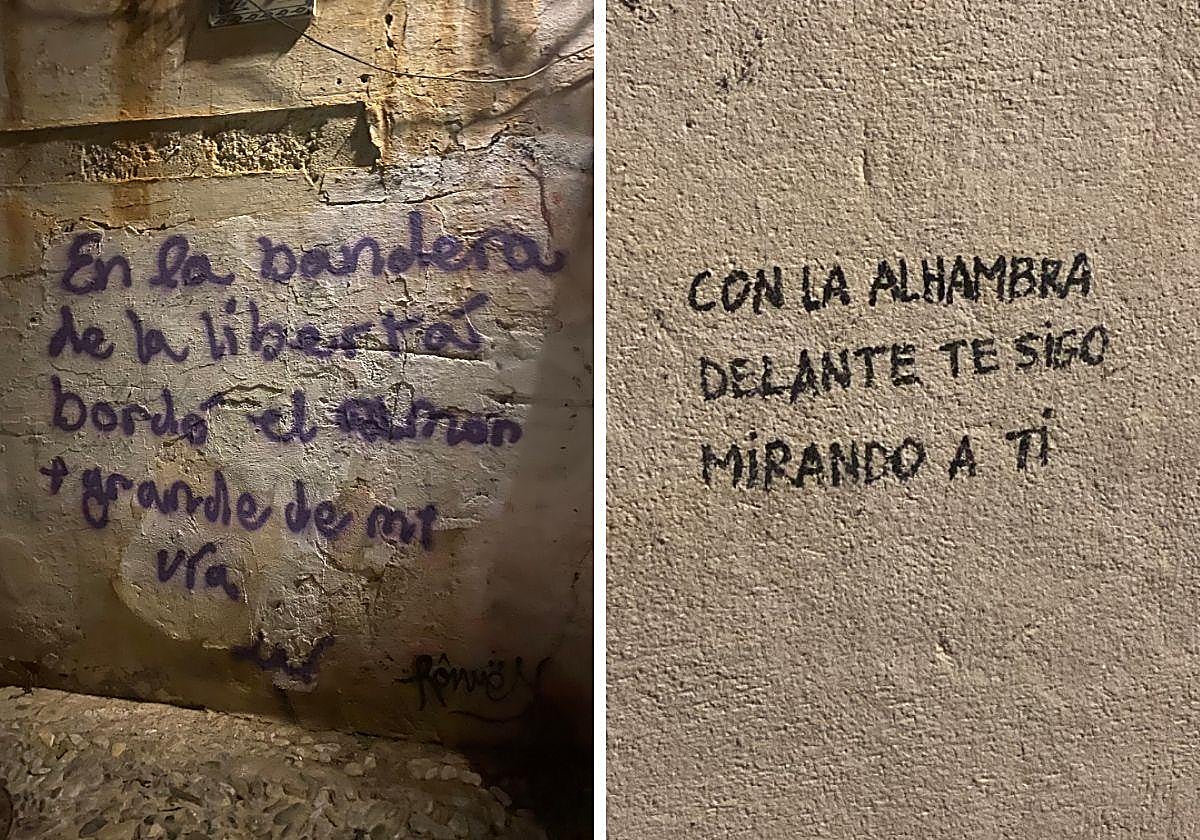 En la bandera
de la libertá
bordó el
+ grande de mi
vía
CON LA ALHAMBRA
DELANTE TE SIGO
MIRANDO A TI